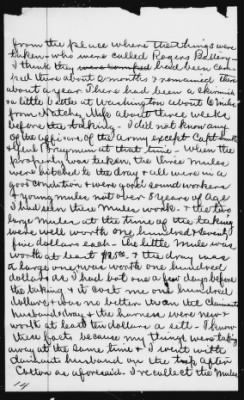 from the place where the things were
taken who were called Rogers Battery
I think they were camped had been cam-
ped there about 2 months & remained there
about a year There had been a skirmish
or little battle at Washington about 6 miles
from Natchez Miss about three weeks
before the taking. I did not know any
of the officers of the army except Capt
& Genl Brayman at that time - When the
property was taken, the three mules
were hitched to the dray & all were in a
good condition & were good sound workers
& young mules not over 8 years of age
I had seen these mules work. & the two
large mules at the time of the taking
were well worth one hundred & seventy
five dollars each - The little mule was
worth at least $125.00 & the dray was
a large one & was worth one hundred
dollars as I had bot one a few days before
the taking & it cost me one hundred
dollars & was no better than the claimants
husbands dray & the harness were new &
worth at least ten dollars a sett - I know
these facts because my things were taken
away at the same time & I went with
claimants husband on the trip after
Cotton as aforesaid. I recollect the mules
14